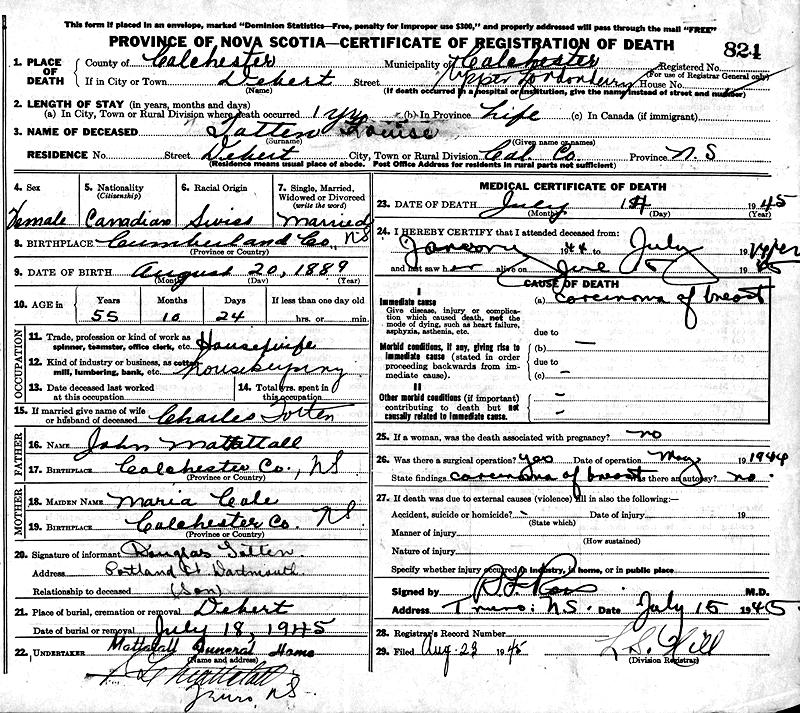 This form if placed in an envelope, marked "Dominion Statistics—Free, penalty for improper use $300," and properly addressed will pass through the mail "FREE"
PROVINCE OF NOVA SCOTIA—CERTIFICATE OF REGISTRATION OF DEATH
824
1. PLACE OF DEATH County of Colchester Municipality of Colchester Registered No.
(For use of Registrar General only)
If in City or Town Debert Street Upper Londonderry House No.
(Name) (If death occurred in a hospital or institution, give the name instead of street and number)
2. LENGTH OF STAY (in years, months and days)
(a) In City, Town or Rural Division where death occurred 1 yr (b) In Province Life (c) In Canada (if immigrant)
3. NAME OF DECEASED Totten Louise
(Surname) (Given name or names)
RESIDENCE No. Street Debert City, Town or Rural Division Col. Co. Province N.S
(Residence means usual place of abode. Post Office Address for residents in rural parts not sufficient)
4. Sex 5. Nationality (Citizenship) 6. Racial Origin 7. Single, Married, Widowed or Divorced (write the word)
Female Canadian Swiss Married
8. BIRTHPLACE Cumberland Co., NS
(Province or Country)
9. DATE OF BIRTH August 20, 1889
(Month) (Day) (Year)
10. AGE in Years Months Days If less than one day old
55 10 24 hrs. or min.
OCCUPATION
11. Trade, profession or kind of work as spinner, teamster, office clerk, etc. Housewife
12. Kind of industry or business, as cotton mill, lumbering, bank, etc. Housekeeping
13. Date deceased last worked at this occupation 14. Total yrs. spent in this occupation
15. If married give name of wife or husband of deceased Charles Totten
FATHER
16. NAME John Mattatall
17. BIRTHPLACE Colchester Co., NS
(Province or Country)
MOTHER
18. MAIDEN NAME Maria Cole
19. BIRTHPLACE Colchester Co. NS
(Province or Country)
20. Signature of informant Douglas Totten
Address Portland St Dartmouth
Relationship to deceased (Son)
21. Place of burial, cremation or removal Debert
Date of burial or removal July 18, 1945
22. UNDERTAKER Mattatall Funeral Home
(Name and address)
Mattatall
Truro, N.S.
MEDICAL CERTIFICATE OF DEATH
23. DATE OF DEATH July 14 1945
(Month) (Day) (Year)
24. I HEREBY CERTIFY that I attended deceased from:
January 1944 to July 19
and last saw her alive on June 15 1945
CAUSE OF DEATH
I
Immediate cause (a) carcinoma of breast
Give disease, injury or complication which caused death, not the mode of dying, such as heart failure, asphyxia, asthenia, etc.
due to
Morbid conditions, if any, giving rise to immediate cause (stated in order proceeding backwards from immediate cause). (b) —
due to
(c) —
II
Other morbid conditions (if important) contributing to death but not causally related to immediate cause. –
–
25. If a woman, was the death associated with pregnancy? no
26. Was there a surgical operation? yes Date of operation May 1944
State findings carcinoma of breast Was there an autopsy? no
27. If death was due to external causes (violence) fill in also the following:—
Accident, suicide or homicide? - Date of injury 19
(State which)
Manner of injury
(How sustained)
Nature of injury
Specify whether injury occurred in industry, in home, or in public place
Signed by M.D.
Address Truro, N.S. Date July 15 1945
28. Registrar's Record Number
29. Filed Aug. 23 1945 Hill
(Division Registrar)